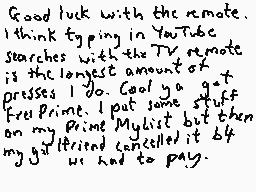 Good luck with the remote.
I think typing in YouTube
searches with the TV remote
is the longest amount of
presses I do. Cool ya got
free Prime. I put some stuff
on my Prime Mylist but then
my girlfriend cancelled it b4
we had to pay.